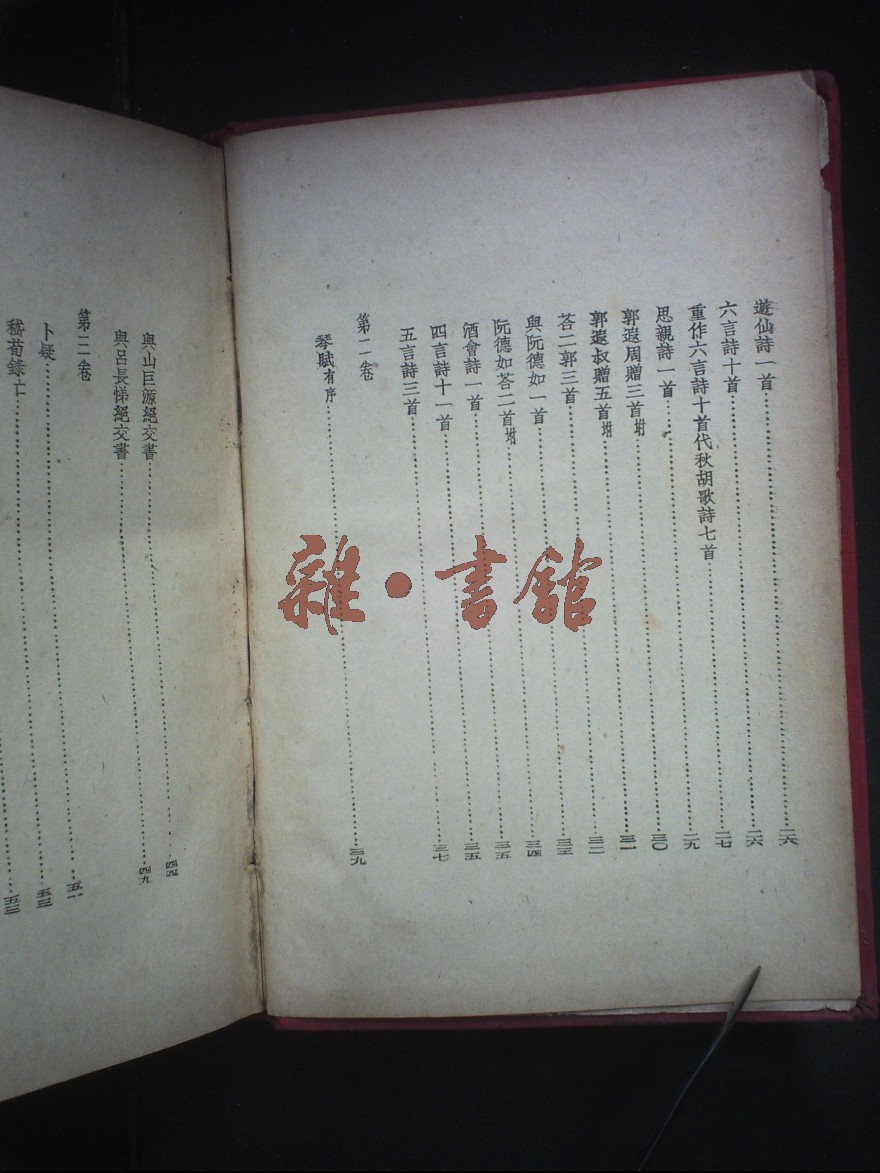 遊仙詩一首……二六
六言詩十首……二六
重作六言詩十首代秋胡歌詩七首……二七
思親詩一首……二九
郭遐周贈三首坿……三〇
郭遐叔贈五首坿……三一
荅二郭三首……三二
與阮德如一首……三三
阮德如荅二首坿……三四
酒會詩一首……三五
四言詩十一首……三五
五言詩三首……三七
第二卷
琴賦有序……三九
雜·書館
與山巨源絕交書……四四
與呂長悌絕交書……四九
第三卷
卜疑……五一
嵇荀錄亡……五三
五三